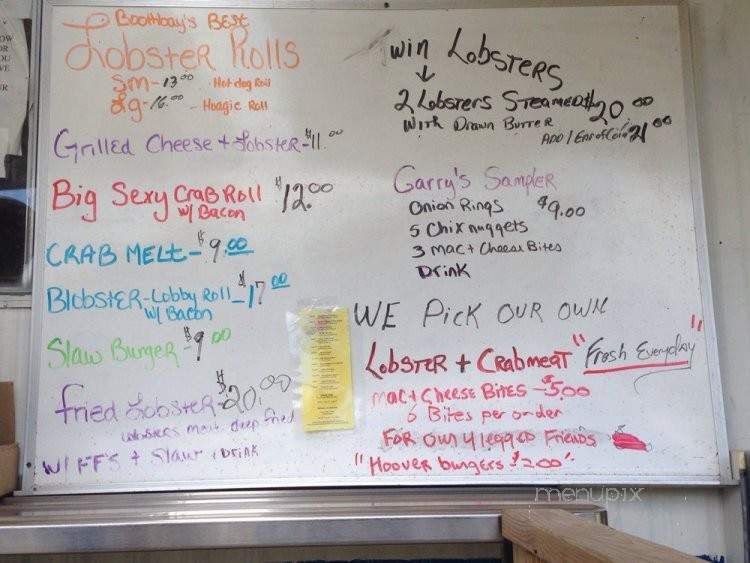 Boothbay's BEST
Lobster Rolls
Sm - 13.00 - Hot dog Roll
Lg - 16.00 - Hoagie Roll
Grilled Cheese + Lobster - $11.00
Big Sexy Crab Roll $12.00
w/ Bacon
CRAB MELT - $9.00
BlobstER - Lobby Roll - $17.00
w/ Bacon
Slaw Burger - $9.00
fried Lobster - $20.00
lobster meat deep fried
W/ FF'S + Slaw, Drink
Win Lobsters
2 Lobsters Steamed $20.00
With Drawn Butter
ADD 1 Ear of Corn 21.00
Garry's Sampler
Onion Rings $9.00
5 Chix nuggets
3 mac + Cheese Bites
Drink
WE Pick OUR OWN
Lobster + Crabmeat "Fresh Everyday"
mac + Cheese Bites - $5.00
6 Bites per order
FOR Our 4 legged Friends
"Hoover burgers $2.00"
menupix